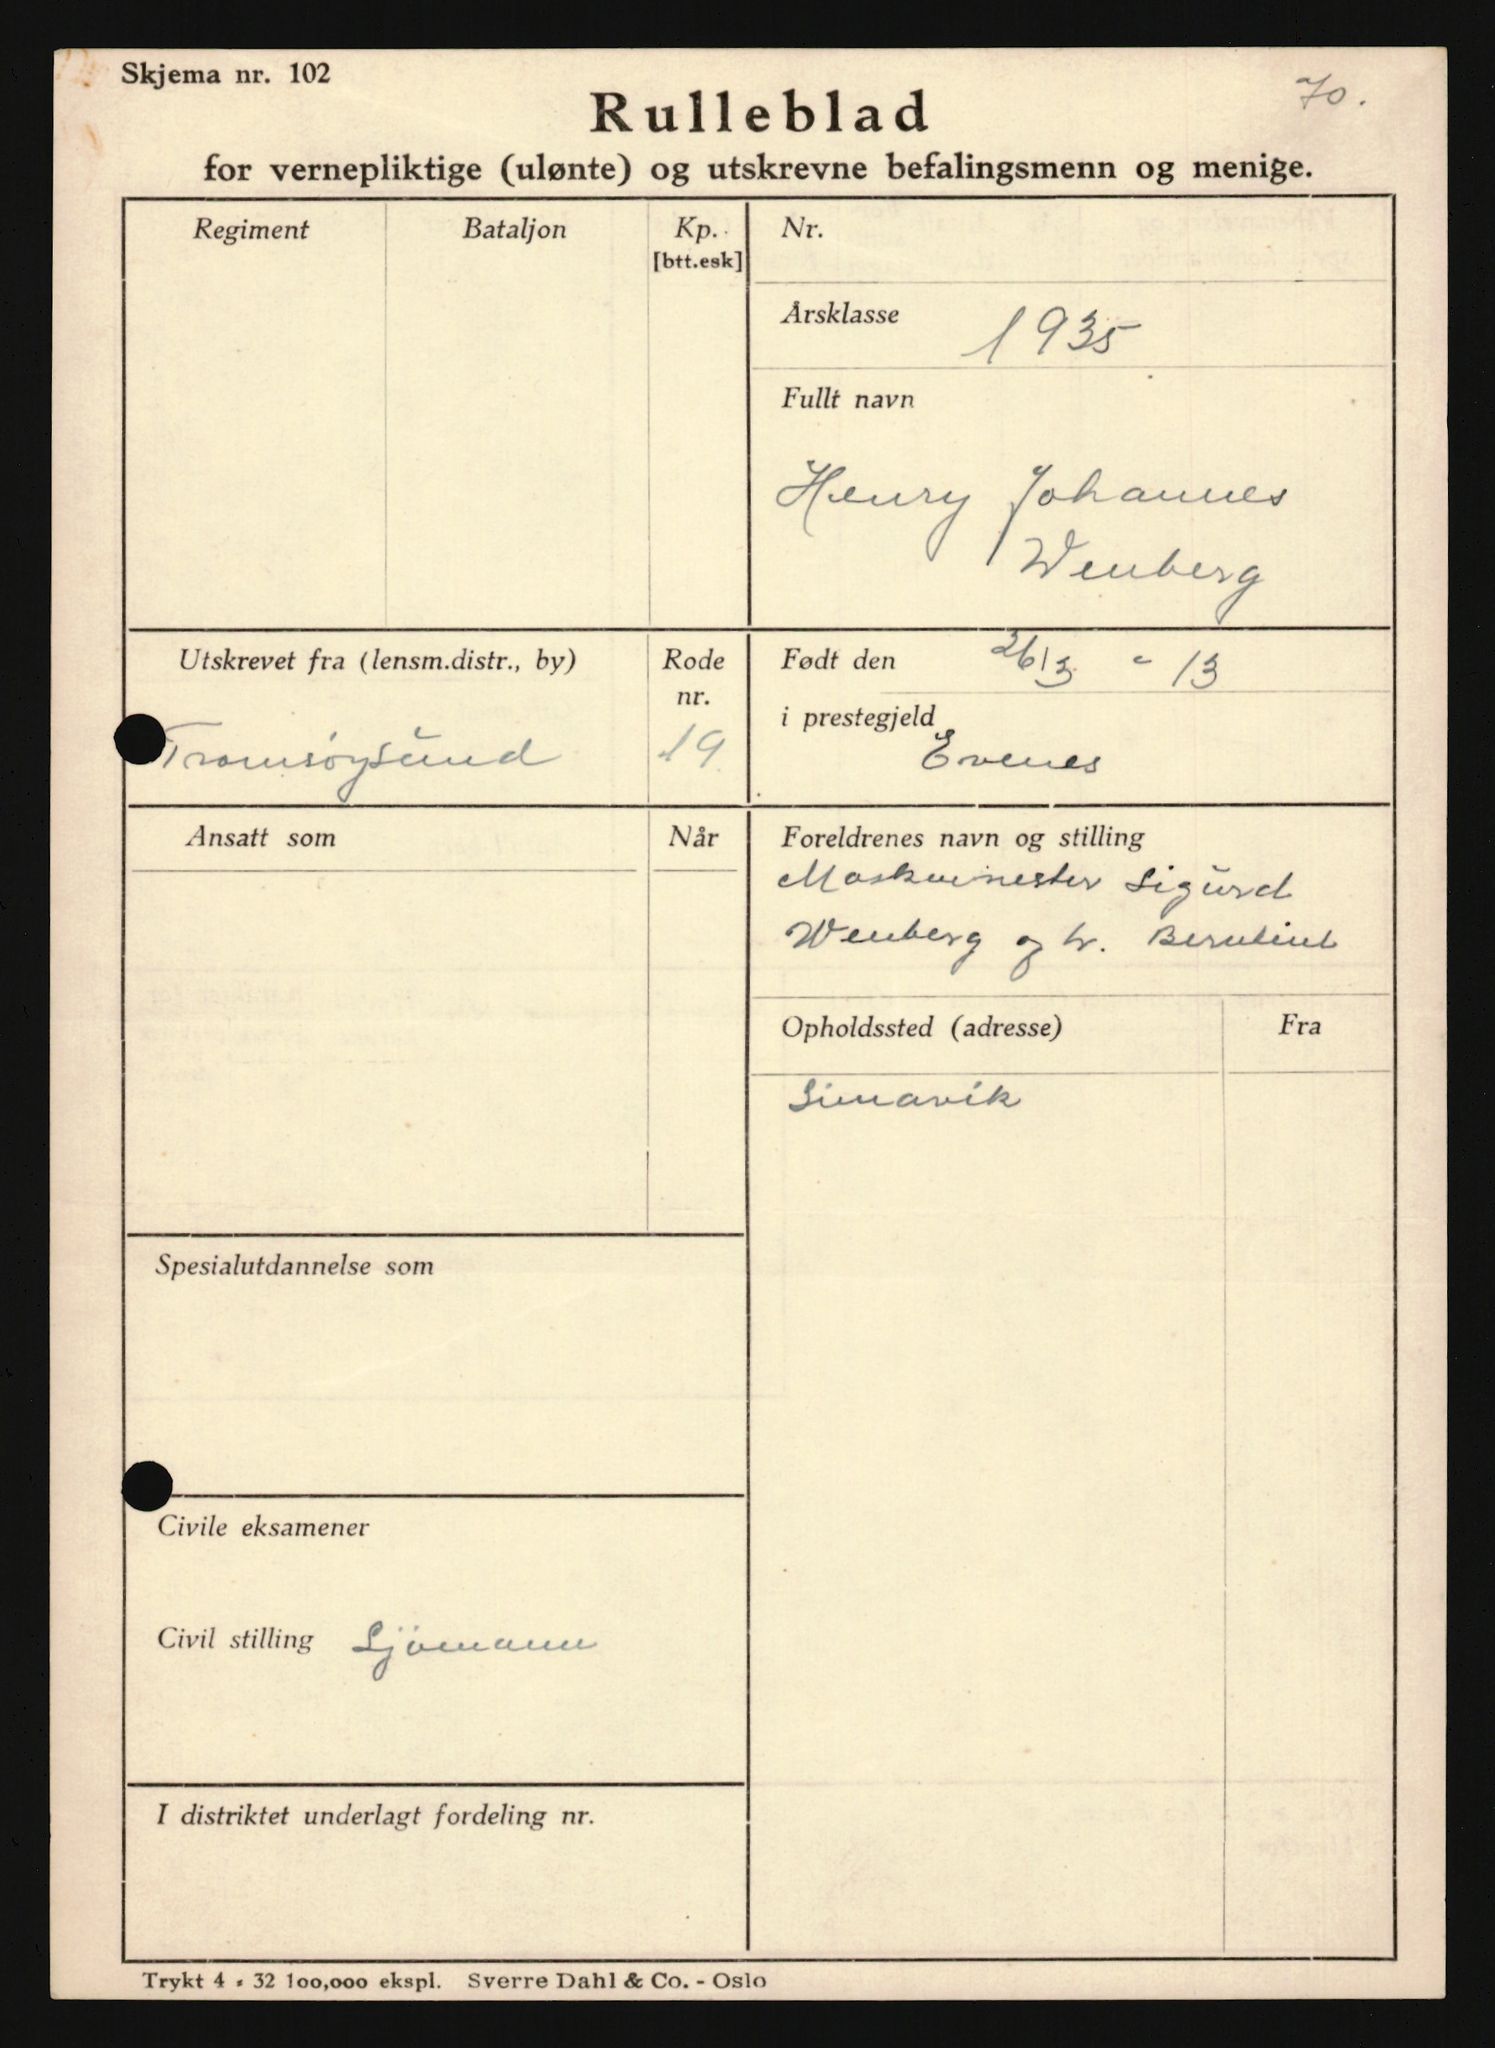 Skjema nr. 102
70.
Rulleblad
for vernepliktige (ulønte) og utskrevne befalingsmenn og menige.
Regiment
Bataljon
Kp.
[btt.esk]
Nr.
Årsklasse 1935
Fullt navn
Henry Johannes
Wenberg
Utskrevet fra (lensm.distr., by)
Tromsøysund
Rode
nr.
19
Født den 26/3 - 13
i prestegjeld
Evenes
Ansatt som
Når
Foreldrenes navn og stilling
Maskinmester Sigurd
Wenberg og h.
Opholdssted (adresse)
Fra
Simavik
Spesialutdannelse som
Civile eksamener
Civil stilling Sjömann
I distriktet underlagt fordeling nr.
Trykt 4 - 32 100,000 ekspl. Sverre Dahl & Co. - Oslo